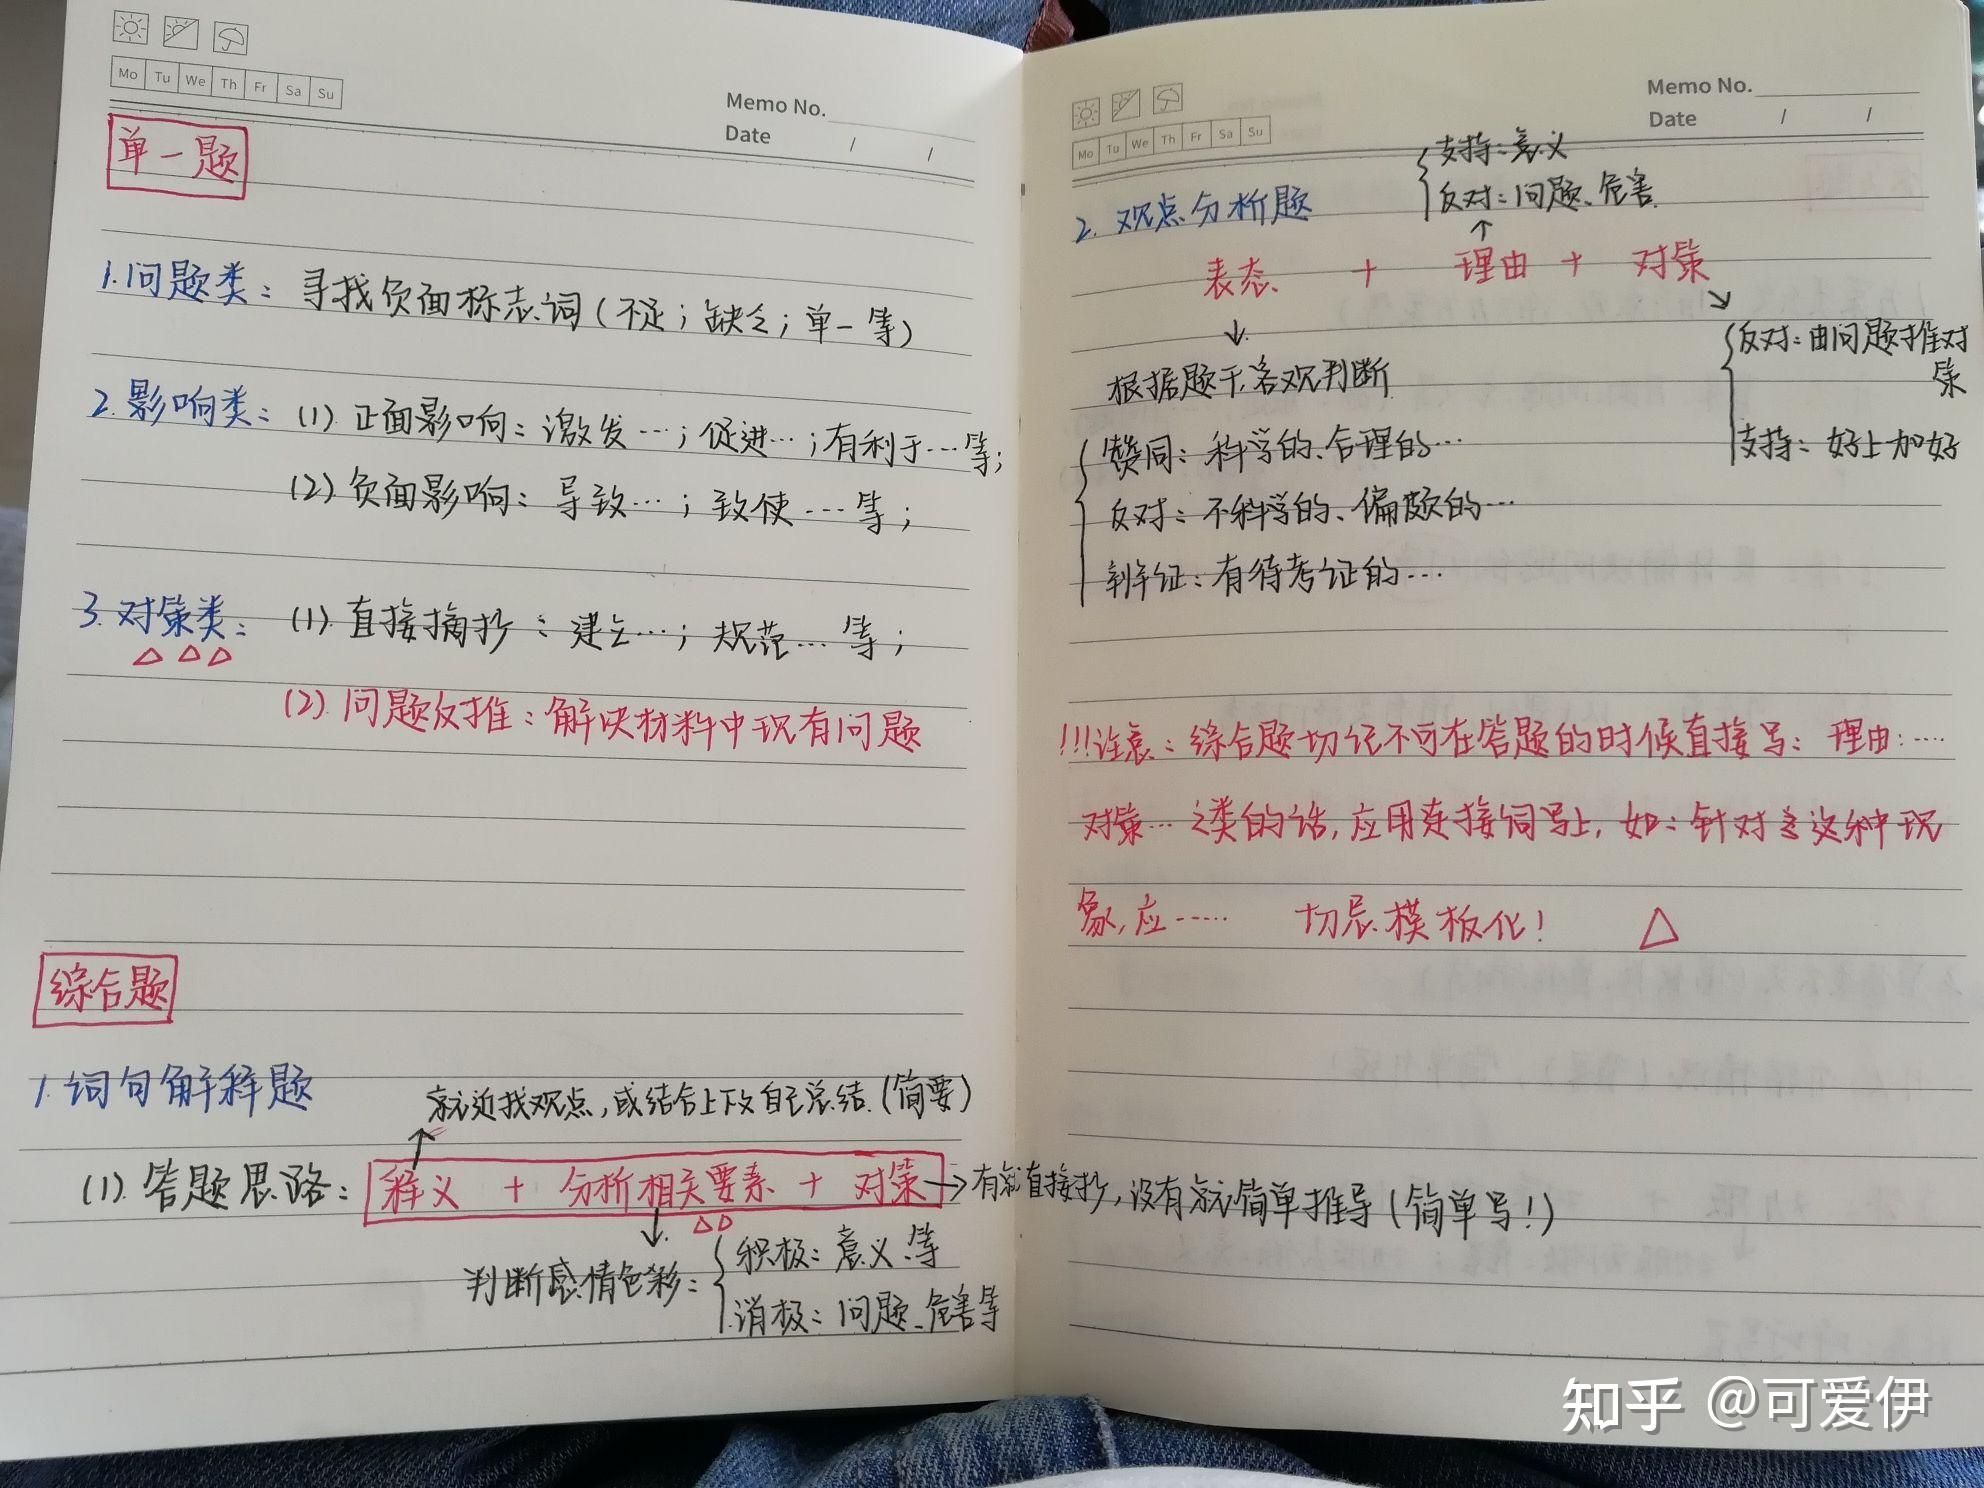 Mo Tu We Th Fr Sa Su
Memo No.
Date / /
单一题
1.问题类：寻找负面标志词（不足；缺乏；单一等）
2.影响类：(1)正面影响：激发…；促进…；有利于…等；
(2)负面影响：导致…；致使…等；
3.对策类：(1).直接摘抄：建立…；规范…等；
(2).问题反推：解决材料中现有问题
综合题
1.词句解释题
就近找观点，或结合上下文自己总结.(简要)
(1).答题思路：释义 + 分析相关要素 + 对策→有就直接抄，没有就简单推导(简单写！)
判断感情色彩：
积极：意义等
消极：问题、危害等
Mo Tu We Th Fr Sa Su
Memo No.
Date / /
支持：意义
反对：问题、危害.
2.观点分析题
表态 + 理由 + 对策
反对：由问题推对策
支持：好上加好
根据题干，客观判断
赞同：科学的、合理的…
反对：不科学的、偏颇的…
辩证：有待考证的…
!!!注意：综合题切记不可在答题的时候直接写：理由：….
对策…之类的话，应用连接词写上，如：针对这种现
象，应…… 切忌模板化！
知乎 @可爱伊